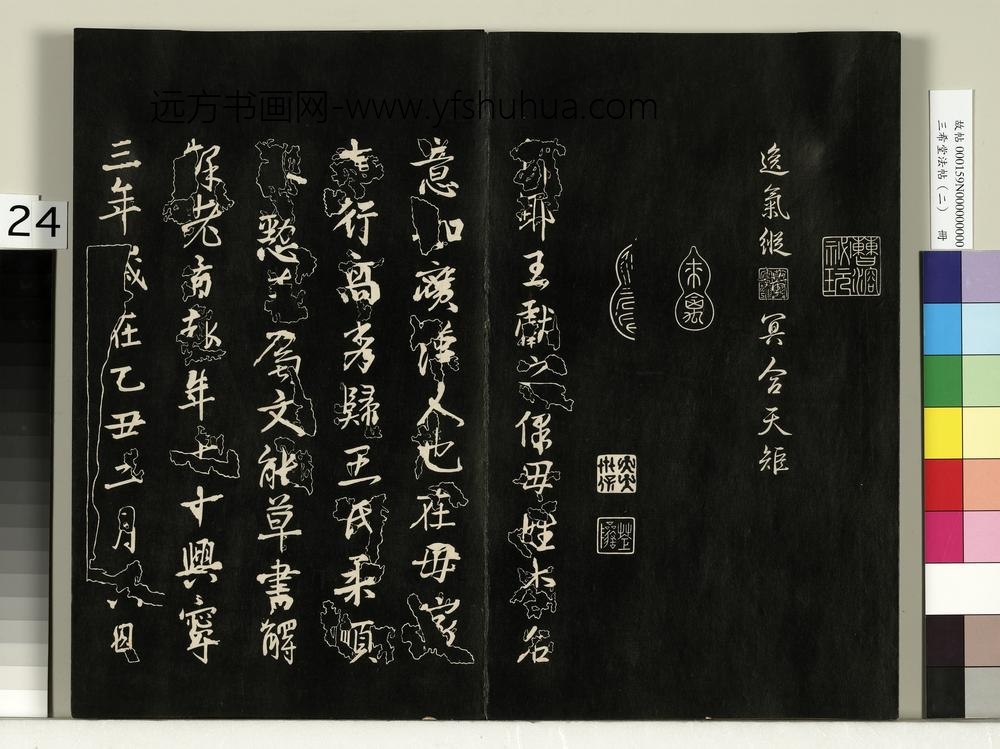 远方书画网-www.yfshuhua.com
故帖000159N000000000
三希堂法帖（二） 册
24
曹溶秘玩
逸氣縱
冥合天矩
郎耶王獻之保母姓李名
意如廣漢人也在母家
志行高秀歸王氏柔順
恭懃善屬文能草書解
釋老旨趣年七十興寧
三年歲在乙丑二月六日